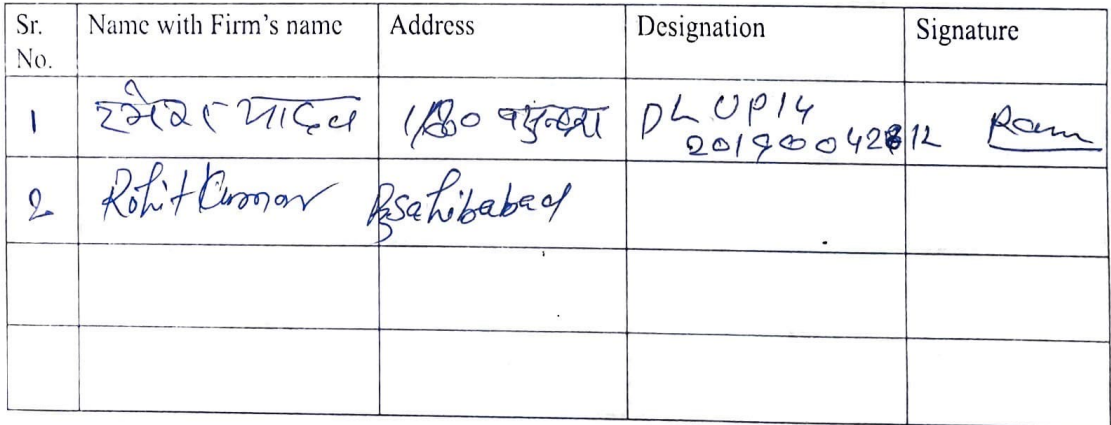 Sr. No. Name with Firm's name Address Designation Signature
1 रमेश यादव वसुन्धरा DL UP14
Ram
2 Rohit Kumar sahibabad